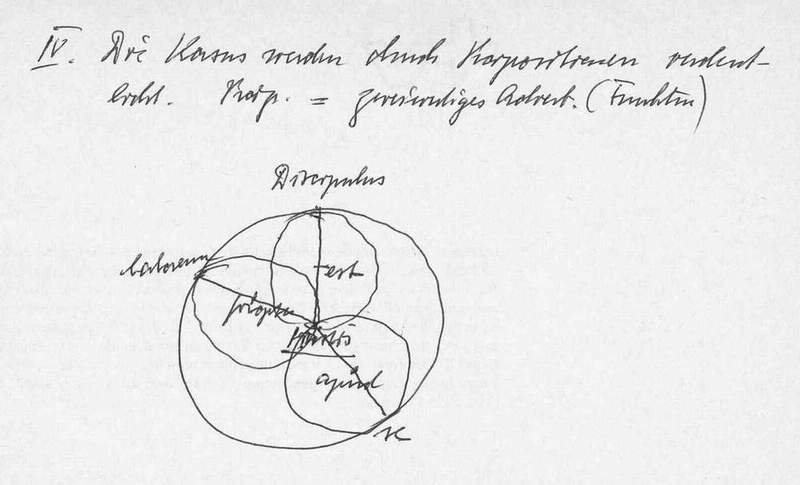 IV. Die Kasus werden durch Präpositionen verdeut-
licht. Präp. = zweiwertiges Adverb. (Funktion)
Discipulus
laborem
est
propter
apud